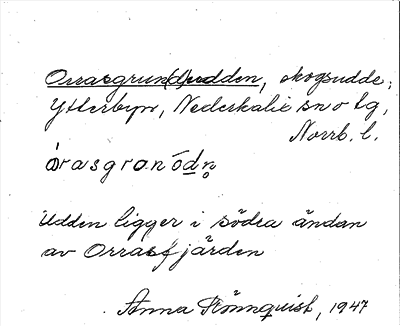 Orrasgrun(d)udden, skogsudde;
Ytterbyn, Nederkalix sn o tg,
Norrb. l.
órasgranódn̥
Udden ligger i södra ändan
av Orrasfjärden
Anna Rönnquist, 1947